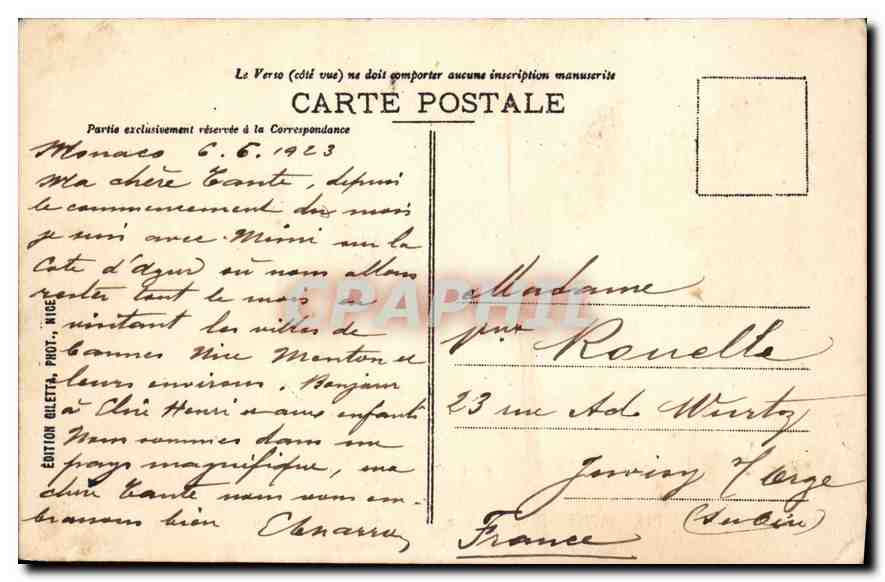 Le Verso (côté vue) ne doit comporter aucune inscription manuscrite
CARTE POSTALE
Partie exclusivement réservée à la Correspondance
Monaco 6. 6. 1923
Ma chère Tante, depuis
le commencement du mois
je suis avec Mimi sur la
Cote d'Azur où nous allons
rester tout le mois en
visitant les villes de
Cannes Nice Menton et
leurs environs. Bonjour
à Henri et aux enfants
Nous sommes dans un
pays magnifique, ma
chère Tante nous vous em-
brassons bien
ÉDITION GILETTA, PHOT., NICE
CPAPHIL
Madame
Rouelle
23 rue Ad. Wurtz
Juvisy s/ Orge
France